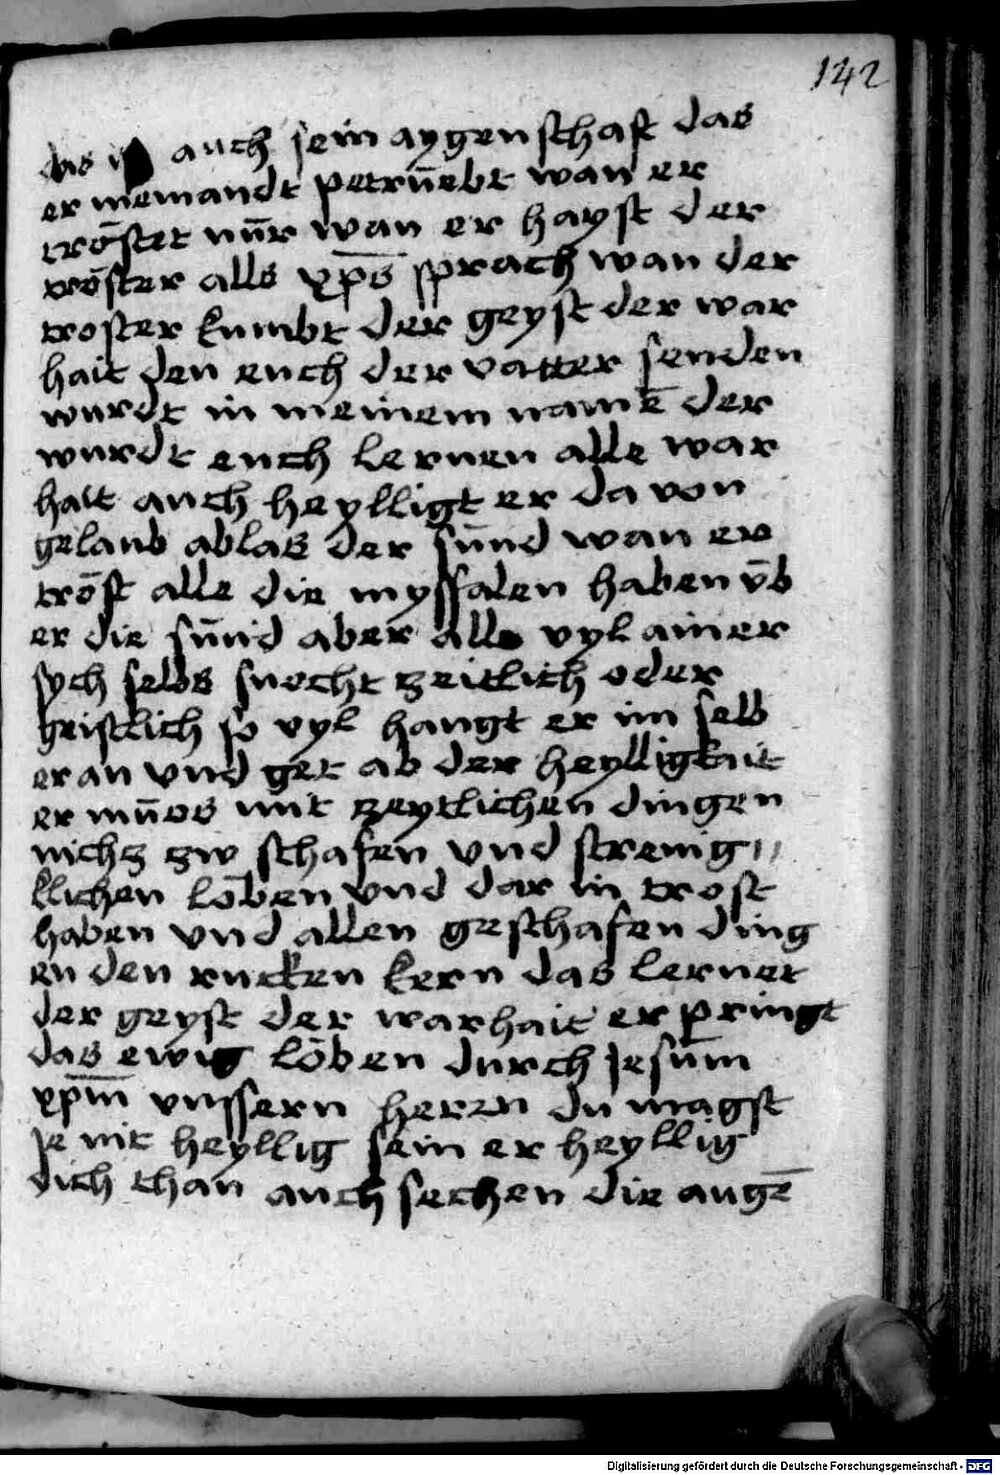 142
das ist auch sein aygenschaft das
er niemandt petrübt wan er
tröstet nür wan er hayst der
tröster alls xp̄s sprach wan der
troster kumbt der geyst der war
hait den euch der vatter senden
wurdt in meinem namē der
wurdt euch lernen alle war
hait auch heylligt er da von
gelaub ablas der sünd wan er
tröst alle die myssalen haben v̄b
er die sünd aber alls vyl ainer
sych selbs suocht zeitlich oder
geistlich so vyl hangt er im selb
er an vnd get ab der heylligkait
er müos mit zeytlichen dingen
nichz zw schafen vnd strenig//
klichen löben vnd dar in trost
haben vnd allen geschafen ding
en den rucken kern das lernet
der geyst der warhait er pringt
das ewig löben durch Jesum
xp̄m vnssern herrn du magst
Je nit heyllig sein er heyllig
dich than auch sechen die augē
Digitalisierung gefördert durch die Deutsche Forschungsgemeinschaft - DFG